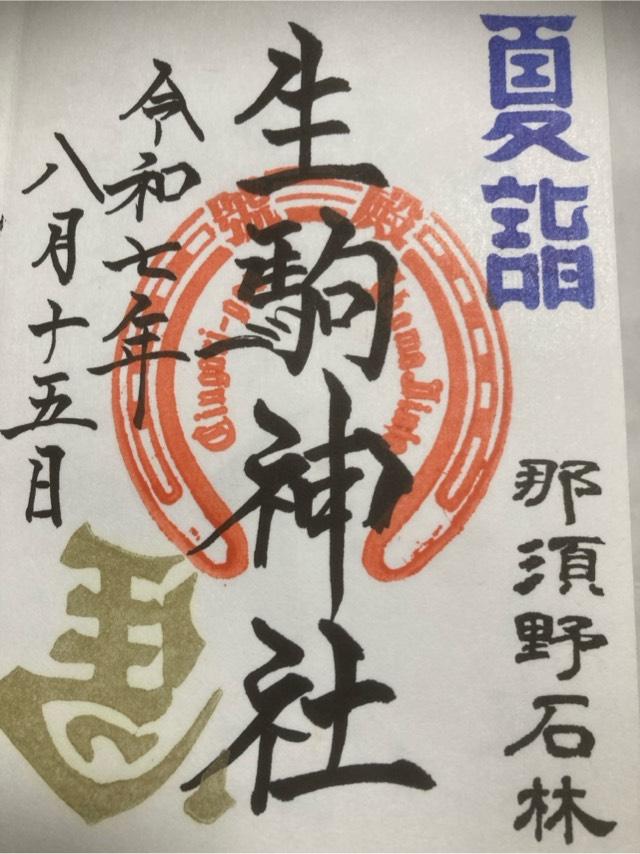 夏詣
那須野石林
生駒神社
殿
令和七年
八月十五日
馬